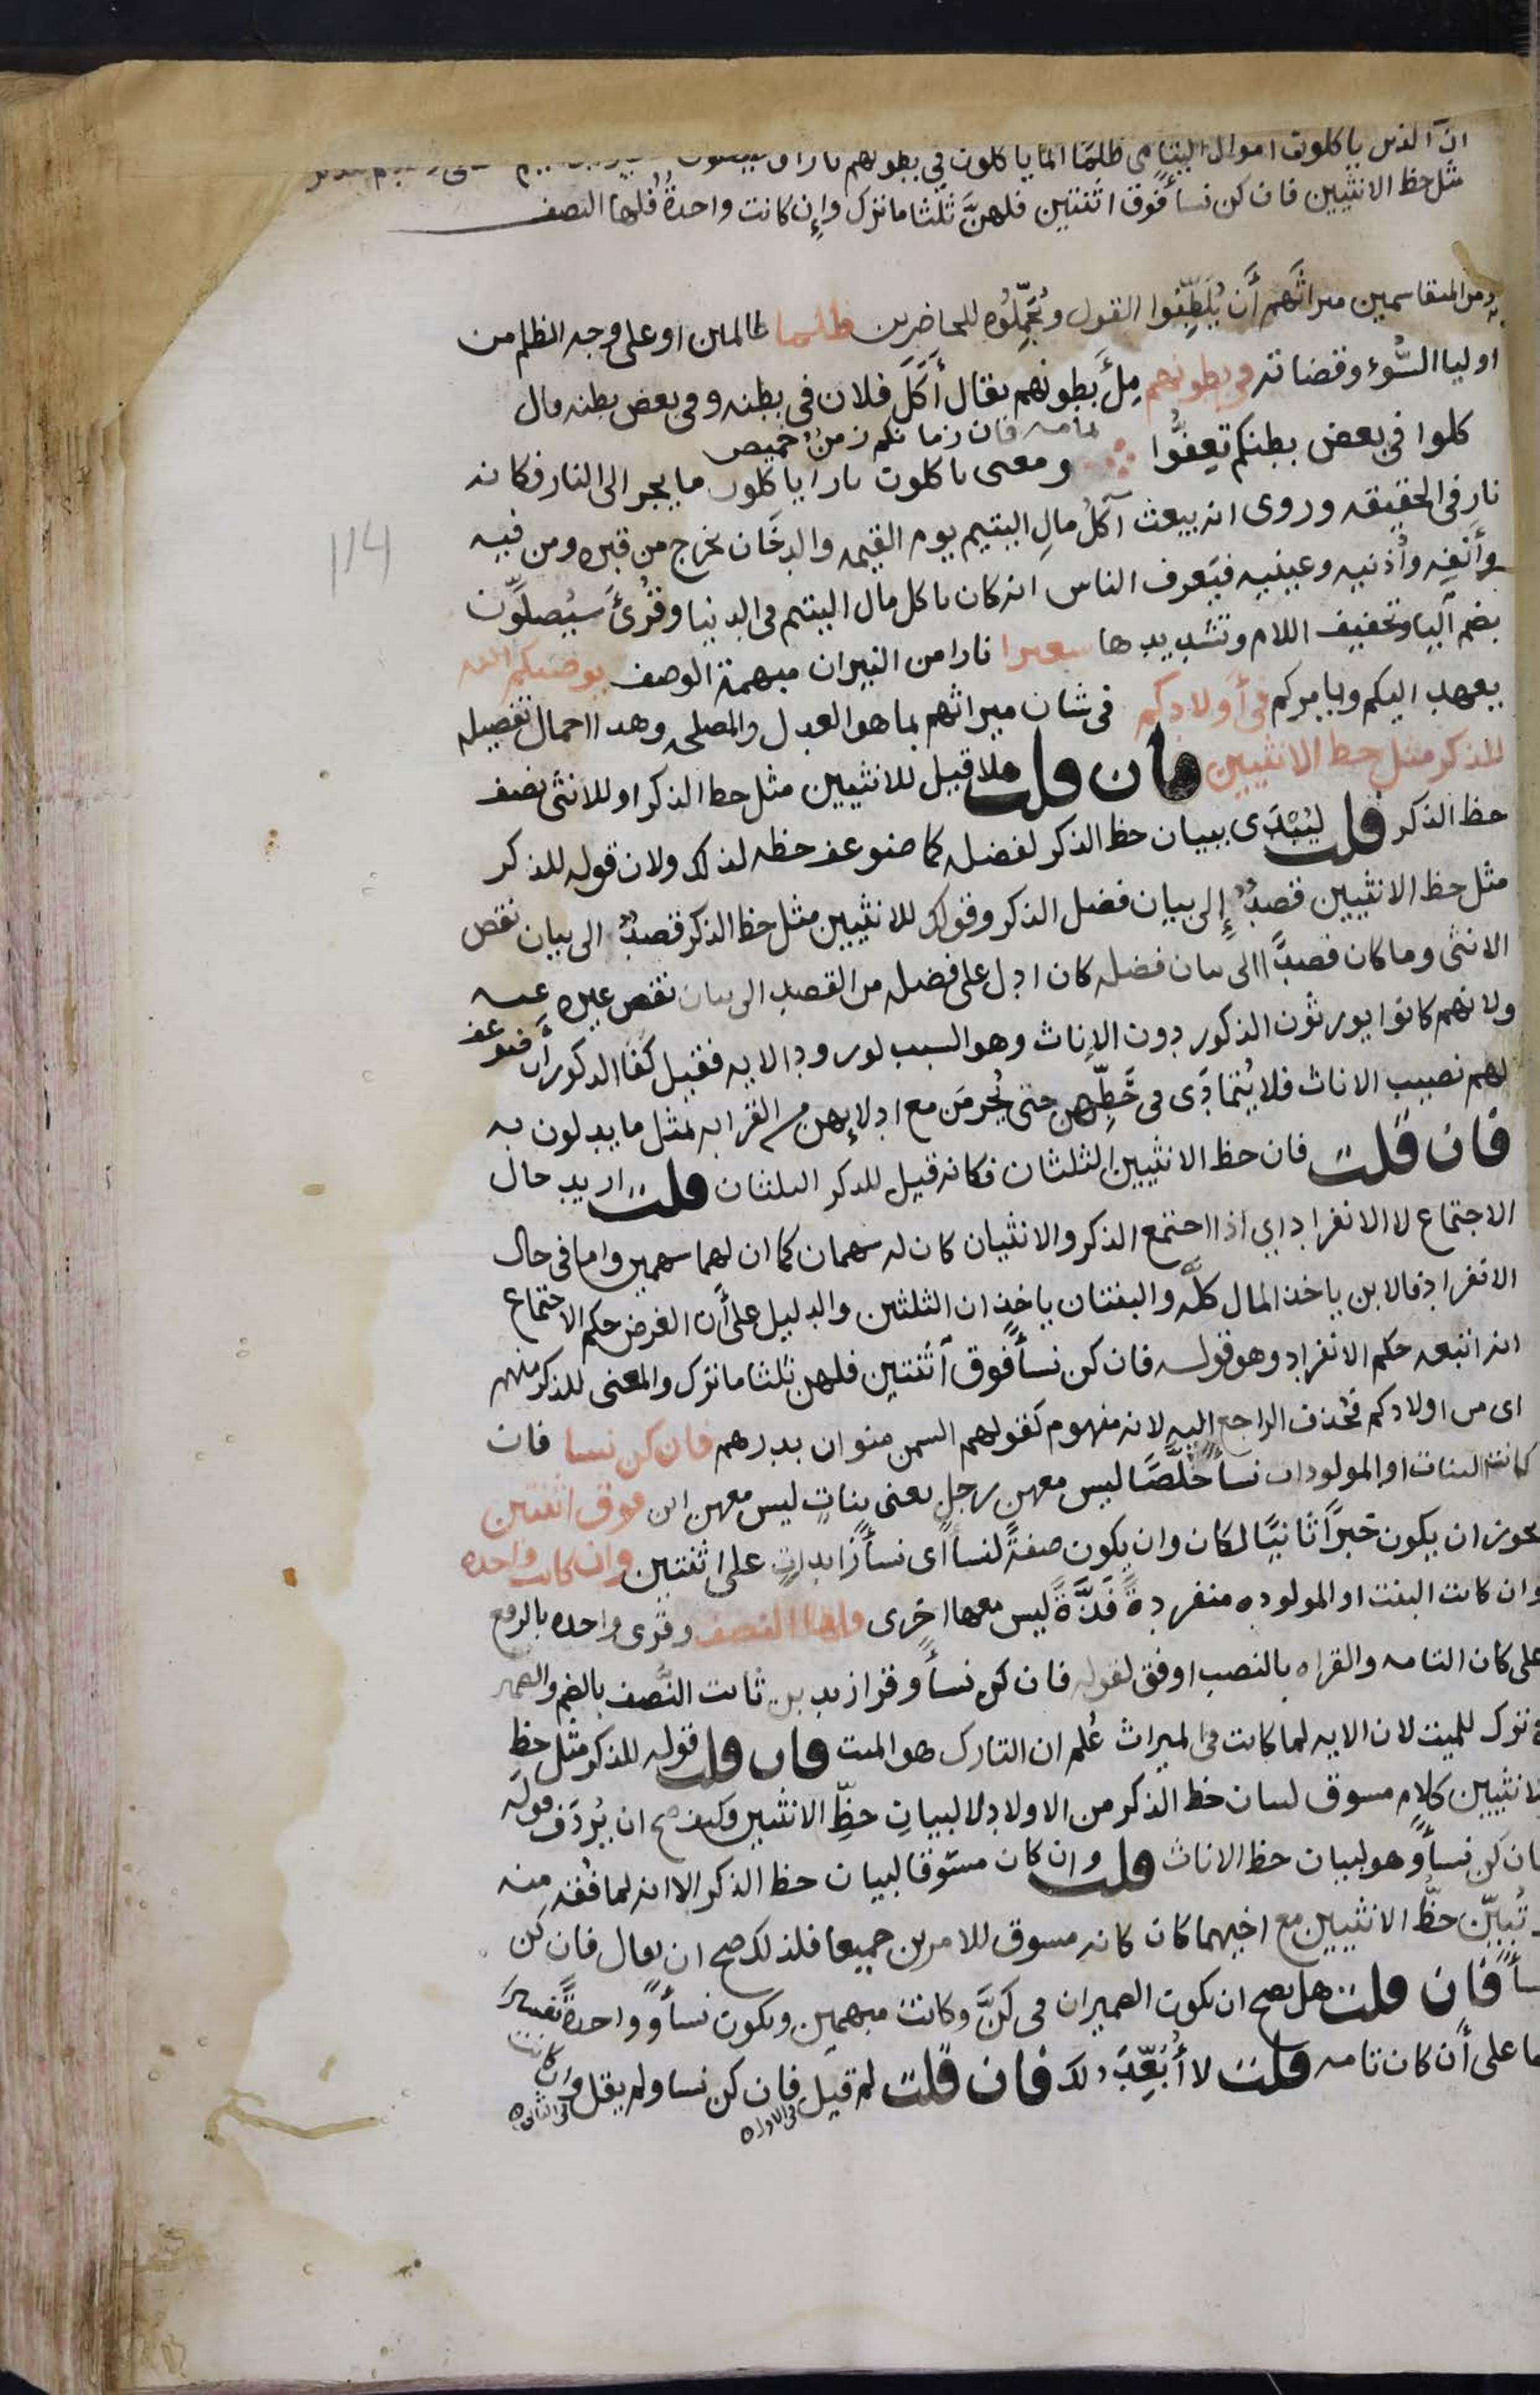 ان الذين ياكلون اموال اليتامى ظلما انما ياكلون في بطونهم نارا
مثل حظ الانثيين فان كن نسأ فوق اثنتين فلهنَّ ثلثا ما ترك وإن كانت واحدةً فلها النصف
من المتقاسمين ميراثهم أن يُلَطِّفُوا القول ويُجَمِّلُوه للحاضرين ظلما ظالمين او على وجه الظلم من
اوليا السُّوء وقضاته في بطونهم مِلْءَ بطونهم يقال أَكَلَ فلان في بطنه وفي بعض بطنه قال
كلوا في بعض بطنكم تَعِفُّوا فان زمانكم زمنٌ خميص
ومعنى ياكلون نارا ياكلون ما يجر الى النار فكانه
نار في الحقيقه وروى انه يبعث آكلُ مالِ اليتيم يوم القيمه والدخان يخرج من قبره ومن فيه
وأَنفِه وأُذنيه وعينيه فيَعرف الناس انه كان ياكل مال اليتيم في الدنيا وقُرئَ سيُصلَوْن
بضم اليا وتخفيف اللام وتشديدها سعيرا نارا من النيران مبهمة الوصف يوصيكم الله
يعهد اليكم ويامركم في أولادكم في شان ميراثهم بما هو العدل والمصلحه وهدا اجمال تفصيله
للذكر مثل حظ الانثيين فان قلت هلا قيل للانثيين مثل حظ الذكر او للانثى نصف
حظ الذكر قلت ليُبْدَى ببيان حظ الذكر لفضله كما ضوعف حظه لذلك ولان قوله للذكر
مثل حظ الانثيين قصدٌ إلى بيان فضل الذكر وقولك للانثيين مثل حظ الذكر قصدٌ الى بيان نقص
الانثى وما كان قصدًا الى بيان فضله كان ادل على فضله من القصد الى بيان نقص غيره عنه
ولانهم كانوا يورثون الذكور دون الإناث وهو السبب لورود الايه فقيل كفَا الدكور أن ضوعف
لهم نصيب الاناث فلا يُتمادَى في حَظِّهن حتى يُحرمنَ مع ادلائِهن من القرابه بمثل ما يدلون به
فان قلت فان حظ الانثيين الثلثان فكانه قيل للدكر الثلثان قلت اريد حال
الاجتماع لا الانفراد اي اذا اجتمع الذكر والانثيان كان له سهمان كما ان لهما سهمين واما في حال
الانفراد فالابن ياخذ المال كلَّه والبنتان ياخذان الثلثين والدليل على أَن الغرض حكم الاجتماع
انه اتبعه حكم الانفراد وهو قوله فان كن نسأً فوق اثنتين فلهن ثلثا ما ترك والمعنى للذكر منهم
اى من اولادكم فحُذف الراجع اليه لانه مفهوم كقولهم السمن منوان بدرهم فان كن نسا فان
كانت البنات او المولودات نسأ خُلَّصًا ليس معهن رجل يعنى بناتٍ ليس معهن ابن فوق اثنتين
يجوز ان يكون خبرًا ثانيًا لكان وان يكون صفةً لنسأ اى نسأ زايداتٍ على اثنتين وان كانت واحده
وان كانت البنت او المولوده منفردةً فَذَّةً ليس معها اخرى فلها النصف وقرى واحده بالرفع
على كان التامه والقراه بالنصب اوفق لقوله فان كن نسأ وقرا زيد بن ثابت النُّصف بالضم والضمير
في ترك للميت لان الايه لما كانت في الميراث عُلم ان التارك هو الميت فان قلت قوله للذكر مثل حظِ
الانثيين كلام مسوق لبيان حظ الذكر من الاولاد لا لبيانِ حظِّ الانثيين وكيف صح ان يُردَف قوله
فان كن نسأ وهو لبيان حظ الاناث قلت وان كان مسوقا لبيان حظ الذكر الا انه لما فُقِه منه
وتُبيِّن حظُّ الانثيين مع اخيهما كان كانه مسوق للامرين جميعا فلذلك صح ان يقال فان كن
نسأ فان قلت هل يصح ان يكون الضميران في كنَّ وكانت مبهمين ويكون نسأ وواحدةً تفسيرًا
لهما على أن كان تامه قلت لا أُبَعِّدُ ذلك فان قلت لم قيل فان كن نسا ولم يقل وان كانت